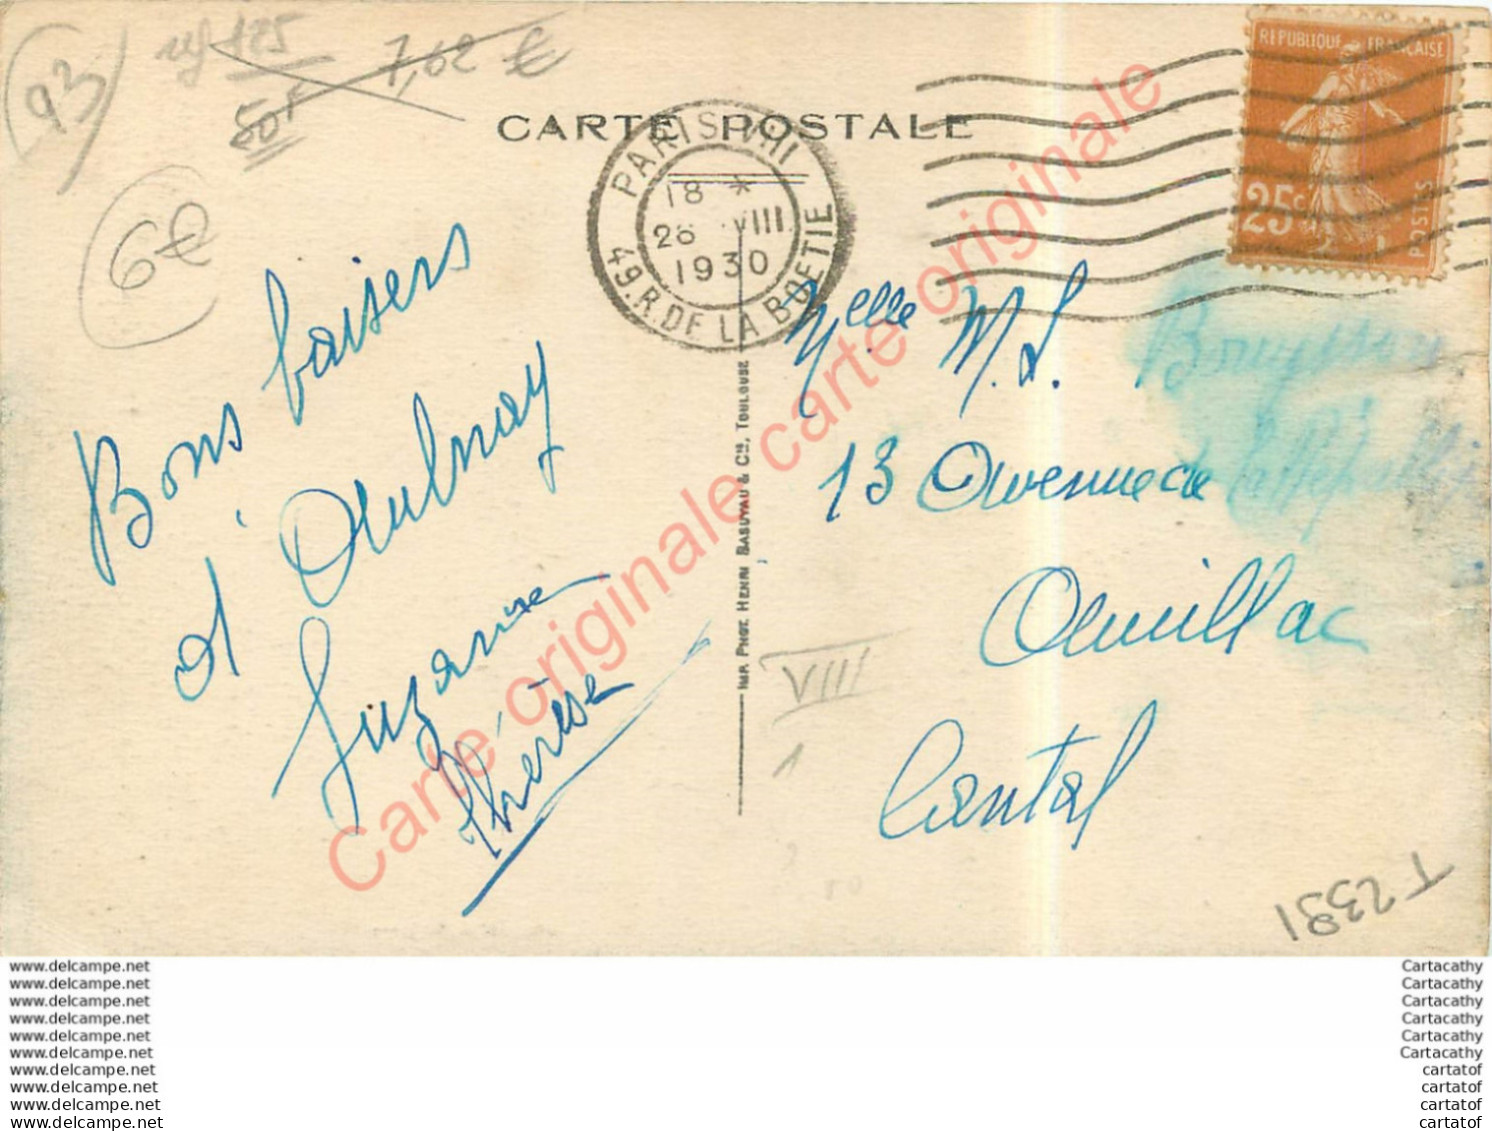 93
ref 185
50F
7,62 €
6€
CARTE POSTALE
PARIS VIII
18 *
26 VIII
1930
49.R.DE LA BOETIE
REPUBLIQUE FRANÇAISE
25c
POSTES
Bons baisers
d'Aulnay
Suzanne
Thérèse
Melle M. L.
13 Avenue de la République
Aurillac
Cantal
IMP. PHOT. HENRI BASUYAU & Cie, TOULOUSE
VIII
1
T 2391
Carte originale carte originale carte originale
www.delcampe.net
www.delcampe.net
www.delcampe.net
www.delcampe.net
www.delcampe.net
www.delcampe.net
www.delcampe.net
www.delcampe.net
www.delcampe.net
www.delcampe.net
Cartacathy
Cartacathy
Cartacathy
Cartacathy
Cartacathy
Cartacathy
cartatof
cartatof
cartatof
cartatof